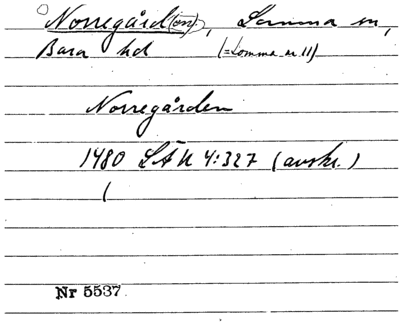 Norregård(en), Lomma sn,
Bara hd (=Lomma nr 11)
Norregården
1480 LÄU 4:327 (avskr.)
(
Nr 5537